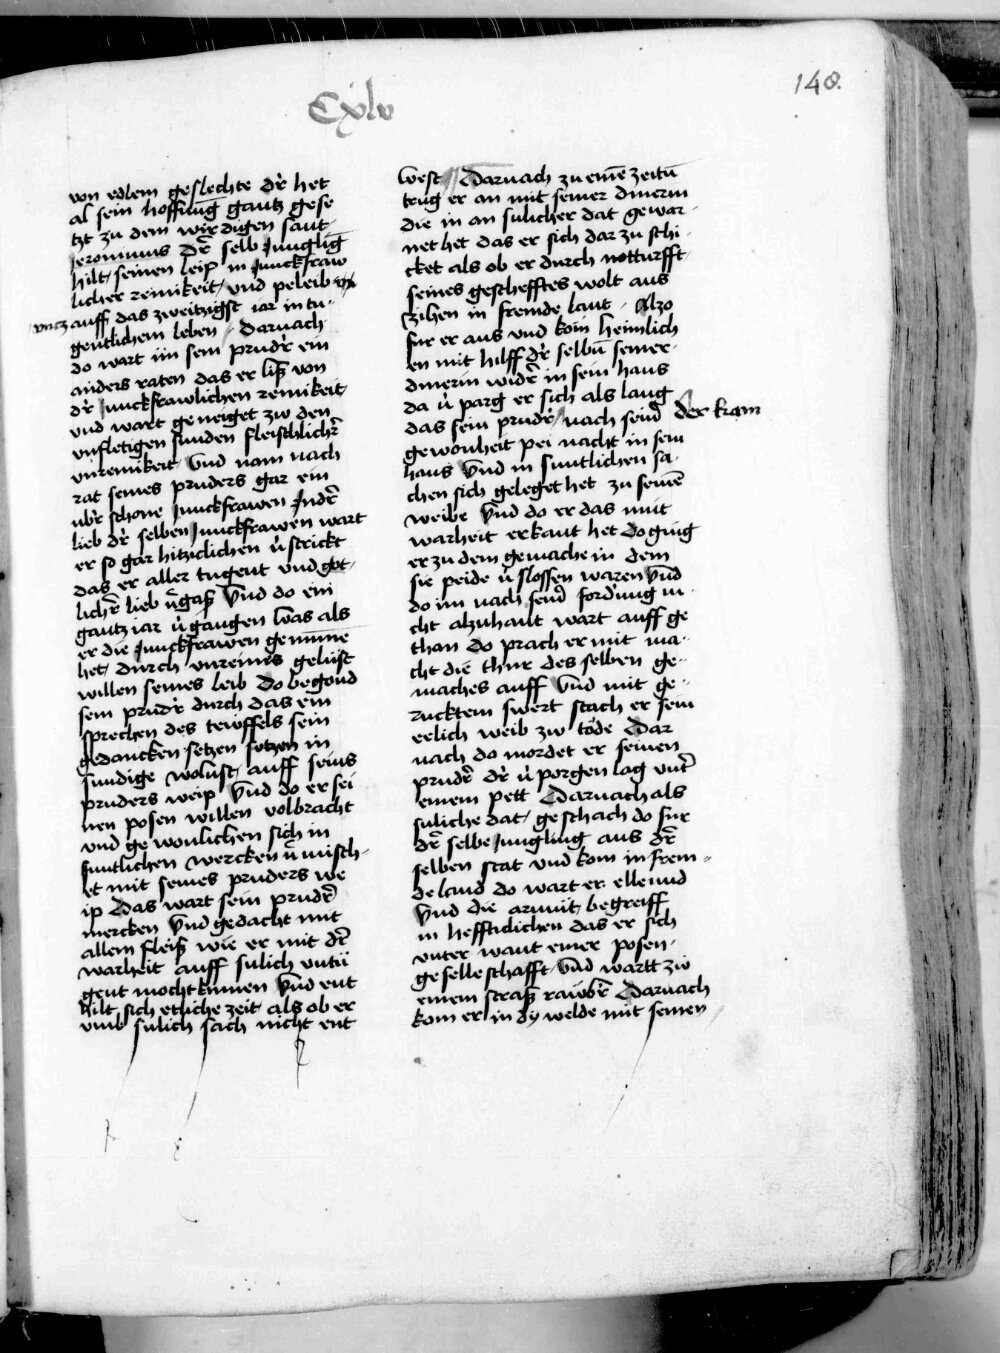 148.
Cxlv
von edlem geslechte dr̃ het
al sein hoffnũg gantz gese
tzt zu dem wirdigen sant
Jeronimus Dr̃ selb Jungligr̃
hilt seinen leip in Junckfraw
licher reinikeit und peleib
vntz auff das zweitzigst iar in tu-
gentlichem leben Darnach
do wart im sein prudr̃ ein
anders raten das er liß von
dr̃ Junckfrawlichen reinikeit
und wart geneiget zw den
vnfletigen sunden fleischlichr̃
vnreinikeit Vnd nam nach
rat seines pruders gar ein
ubr̃ schone Junckfrawen Jndr̃
lieb dr̃ selben Junckfrawen wart
er so gar hitziclichen v̈strickt
das er aller tugent vnd got-
lichr̃ lieb v̈gaß Vnd do ein
gantz iar v̈gangen was als
er die Junckfrawen genum̄e
het durch vnreines gelust
willen seines leib Do begond
sein prudr̃ durch das ein
sprechen des tewffels sein
gedancken setzen setzen in
sundige wolust auff seins
pruders weip Vnd do er sei
nen posen willen volbracht
vnd gewonlichen sich in
suntlichen wercken v̈misch-
et mit seines pruders we
ip Das wart sein prudr̃
mercken Vnd gedacht mit
allem fleiß wie er mit dr̃
warheit auff sulich vntu
gent mocht kumen Vnd ent
hilt sich etliche zeit als ob er
vmb sulich sach nicht ent
West Darnach zu eine zeitu
trug er an mit seiner dinerin
die in an sulicher dat gewar-
net het das er sich dar zu schi-
cket als ob er durch notturfft
seines gescheftes wolt aus
zihen in fremde lant Alzo
fur er aus vnd kom heimlich
en mit hilff dr̃ selbũ seiner
dinerin widr̃ in sein haus
da v̈parg er sich als lang
das sein prudr̃ nach seinr̃ der kam
gewonheit pei nacht in sein
haus Vnd in suntlichen sa-
chen sich geleget het zu seinē
weibe Vnd do er das mit
warheit erkant het Do ging
er zu dem gemache in dem
sie peide v̈slossen waren Vnd
do im nach seinr̃ fordrung ni-
cht alzuhant wart auff ge
than Do prach er mit ma-
cht die thur des selben ge-
maches auff Vnd mit ge-
zucktem swert stach er sein
eelich weib zw tode Dar
nach do mordet er seinen
prudr̃ dr̃ v̈porgen lag vntr̃
einem pett Darnach als
suliche dat geschach do fur
dr̃ selbe Jungling aus dr̃
selben stat vnd kom in frem-
de land do wart er ellend
Vnd die armut begreiff
in hefftidichen das er sich
vnter want einer posen
geselleschafft Vnd wartt zw
einem straß rawbr̃ Darnach
kom er in dy welde mit seinen